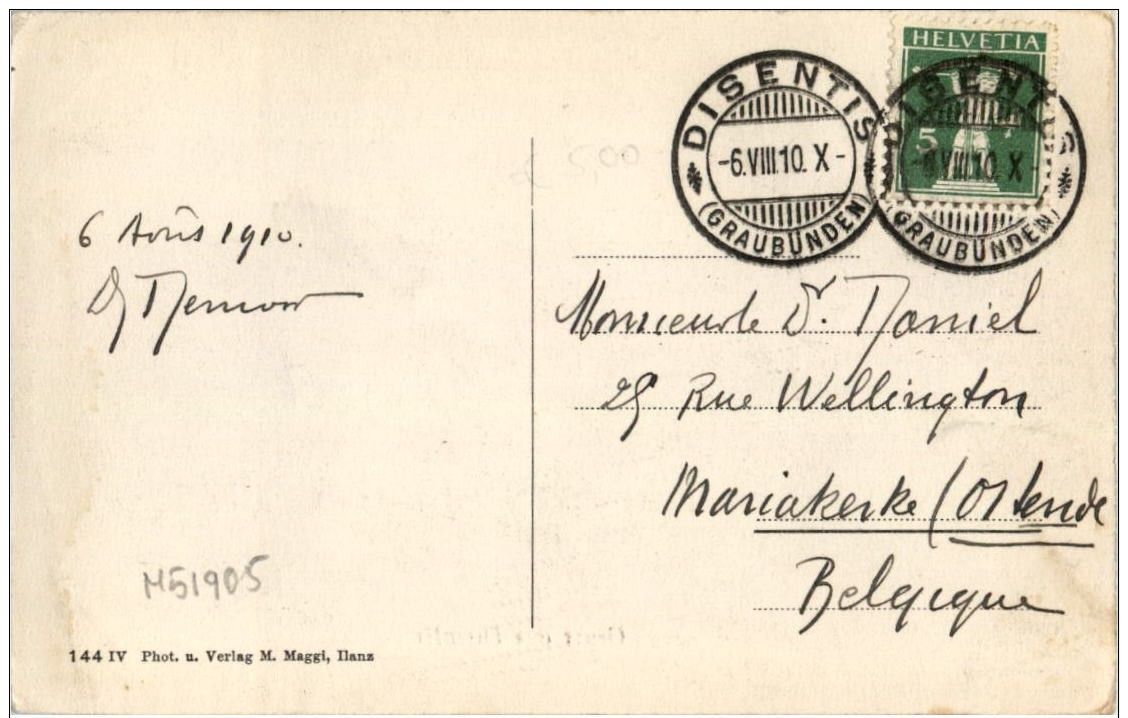 HELVETIA
5
DISENTIS
-6.VIII.10. X-
(GRAUBÜNDEN)
DISENTIS
-6.VIII.10. X-
(GRAUBÜNDEN)
5,00
6 Août 1910.
Monsieur le Dr. Daniel
29 Rue Wellington
Mariakerke / (Ostende
Belgique
M51905
144 IV Phot. u. Verlag M. Maggi, Ilanz